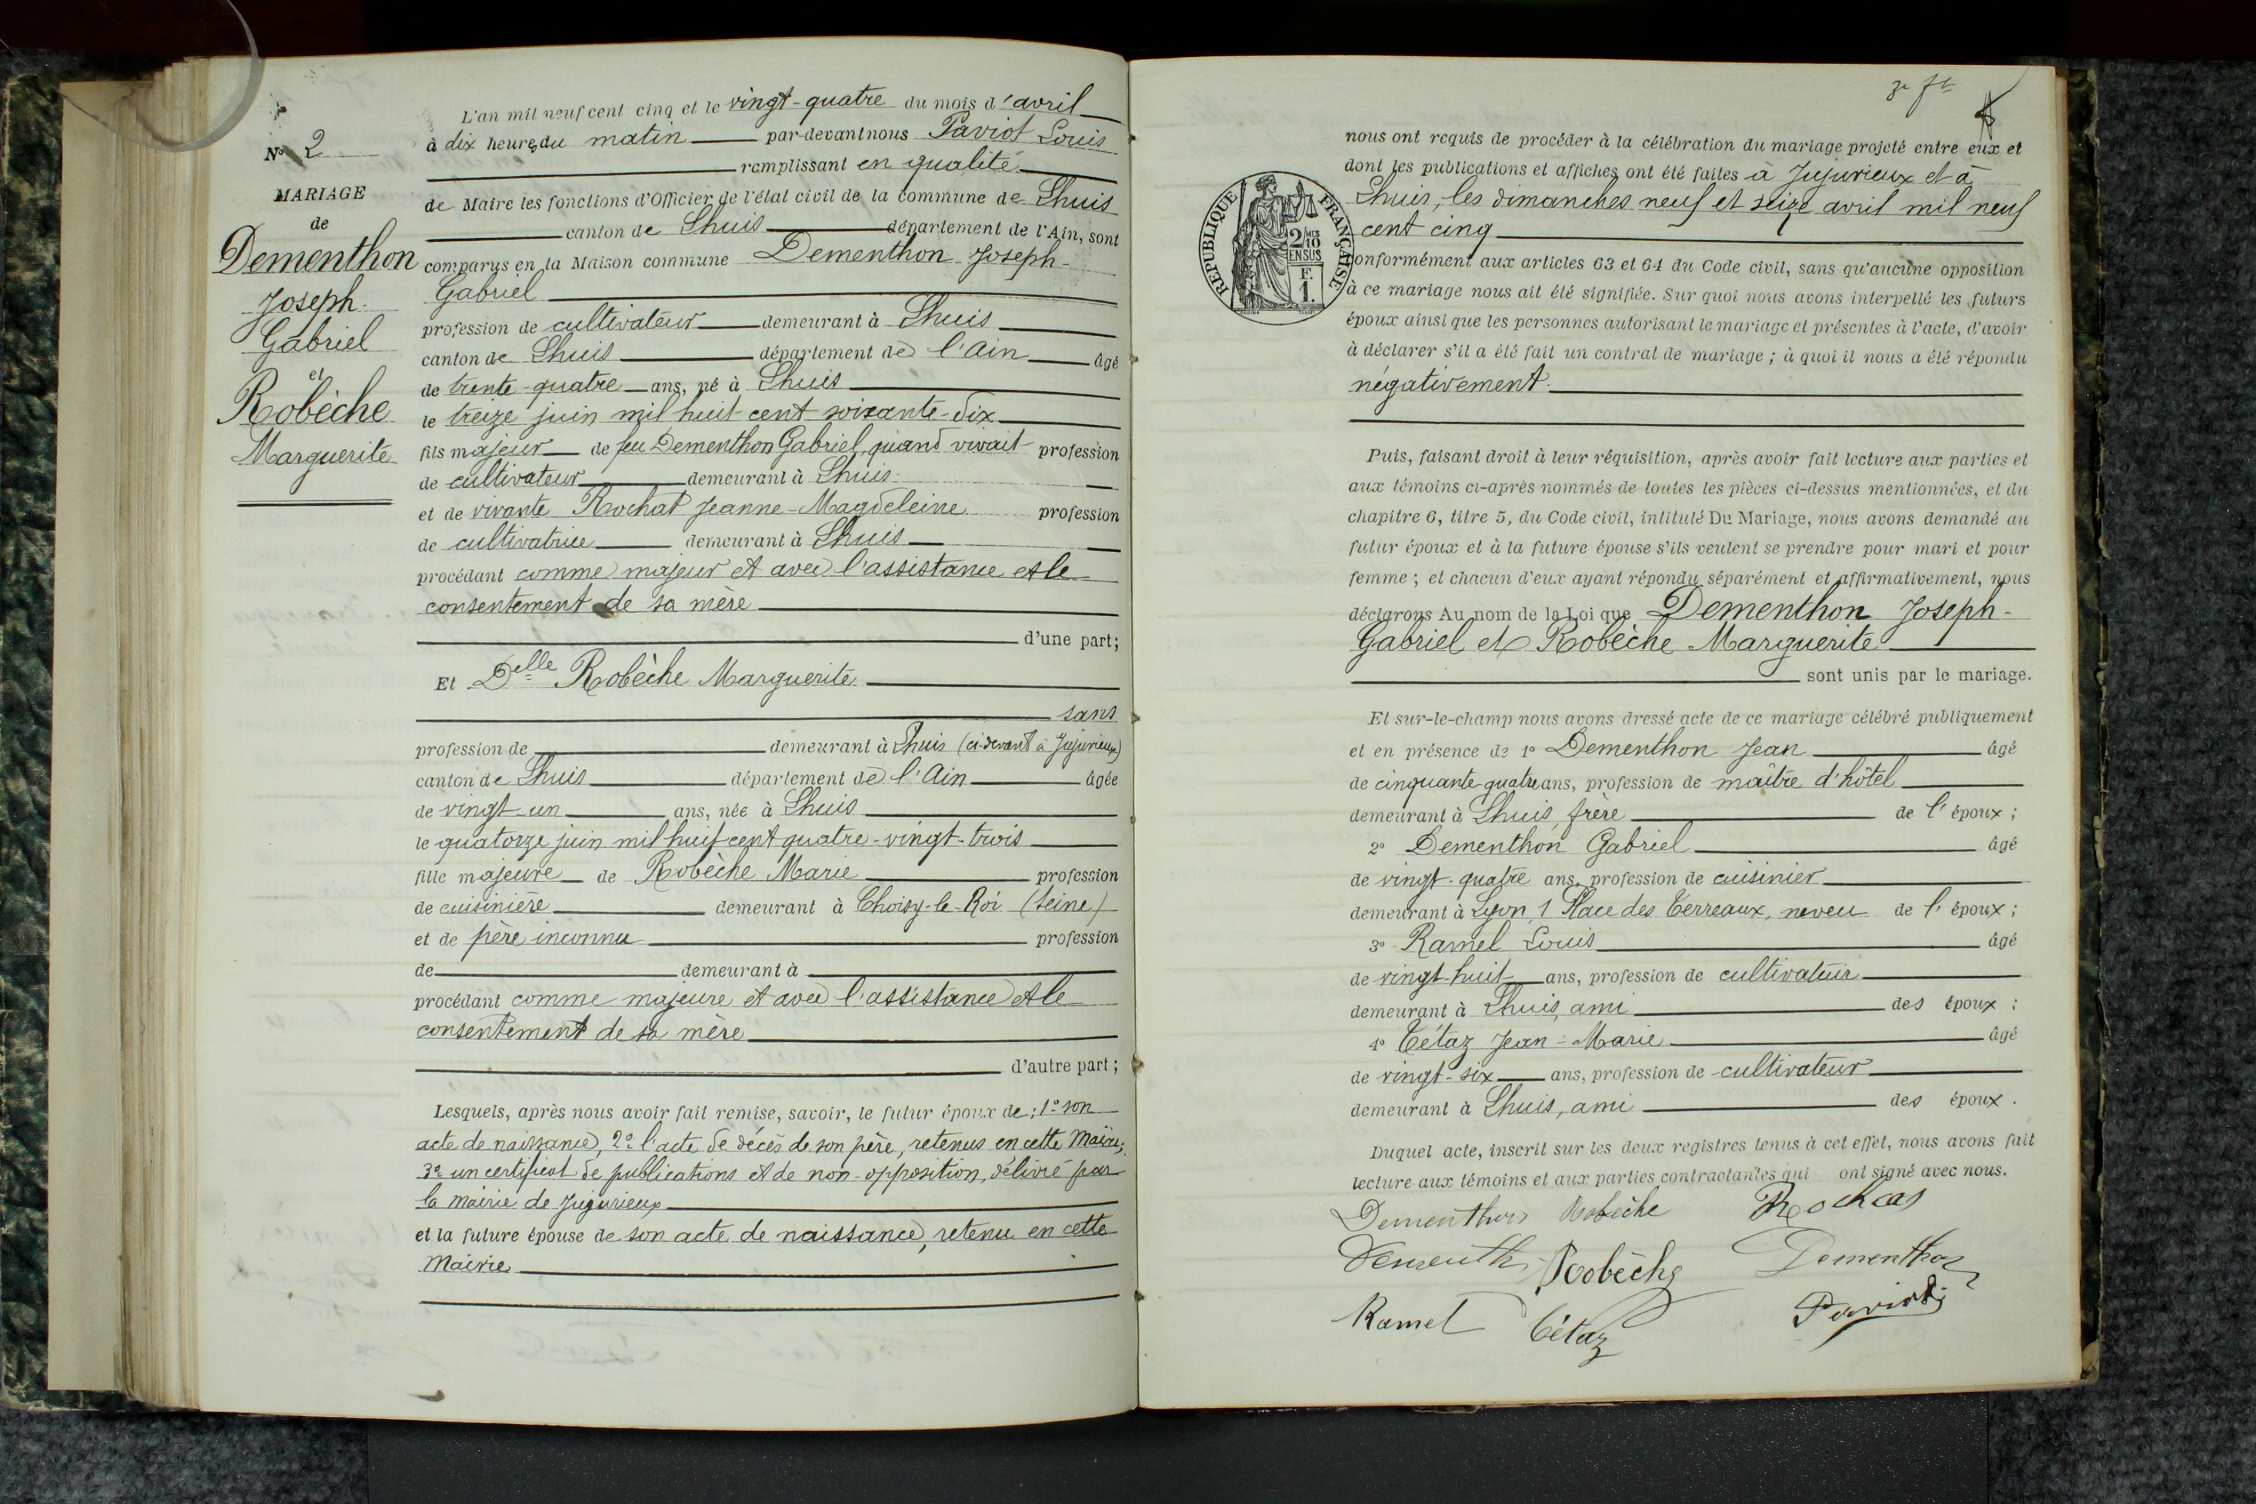 N° 2
MARIAGE
de
Dementhon
Joseph
Gabriel
et
Robèche
Marguerite
L'an mil neuf cent cinq et le vingt-quatre du mois d'avril
à dix heures du matin par-devant nous Paviot Louis
remplissant en qualité
de Maire les fonctions d'Officier de l'état civil de la commune de Lhuis
canton de Lhuis département de l'Ain, sont
comparus en la Maison commune Dementhon Joseph-
Gabriel
profession de cultivateur demeurant à Lhuis
canton de Lhuis département de l'Ain âgé
de trente-quatre ans, né à Lhuis
le treize juin mil huit cent soixante-dix
fils majeur de feu Dementhon Gabriel, quand vivait profession
de cultivateur demeurant à Lhuis
et de vivante Rochat Jeanne-Magdeleine profession
de cultivatrice demeurant à Lhuis
procédant comme majeur et avec l'assistance et le
consentement de sa mère
d'une part;
Et Delle Robèche Marguerite
sans
profession de demeurant à Lhuis (ci-devant à Jujurieux)
canton de Lhuis département de l'Ain âgée
de vingt-un ans, née à Lhuis
le quatorze juin mil huit cent quatre-vingt-trois
fille majeure de Robèche Marie profession
de cuisinière demeurant à Choisy-le-Roi (Seine)
et de père inconnu profession
de demeurant à
procédant comme majeure et avec l'assistance et le
consentement de sa mère
d'autre part;
Lesquels, après nous avoir fait remise, savoir, le futur époux de; 1° son
acte de naissance, 2° l'acte de décès de son père, retenus en cette Mairie;
3° un certificat de publications et de non-opposition, délivré par
la Mairie de Jujurieux
et la future épouse de son acte de naissance, retenu en cette
Mairie
nous ont requis de procéder à la célébration du mariage projeté entre eux et
dont les publications et affiches ont été faites à Jujurieux et à
Lhuis, les dimanches neuf et seize avril mil neuf
cent cinq
RÉPUBLIQUE FRANÇAISE
2/10 MES
EN SUS
F.
1.
conformément aux articles 63 et 64 du Code civil, sans qu'aucune opposition
à ce mariage nous ait été signifiée. Sur quoi nous avons interpellé les futurs
époux ainsi que les personnes autorisant le mariage et présentes à l'acte, d'avoir
à déclarer s'il a été fait un contrat de mariage; à quoi il nous a été répondu
négativement.
Puis, faisant droit à leur réquisition, après avoir fait lecture aux parties et
aux témoins ci-après nommés de toutes les pièces ci-dessus mentionnées, et du
chapitre 6, titre 5, du Code civil, intitulé Du Mariage, nous avons demandé au
futur époux et à la future épouse s'ils veulent se prendre pour mari et pour
femme; et chacun d'eux ayant répondu séparément et affirmativement, nous
déclarons Au nom de la Loi que Dementhon Joseph-
Gabriel et Robèche Marguerite
sont unis par le mariage.
Et sur-le-champ nous avons dressé acte de ce mariage célébré publiquement
et en présence de 1° Dementhon Jean âgé
de cinquante-quatre ans, profession de maître d'hôtel
demeurant à Lhuis, frère de l'époux;
2° Dementhon Gabriel âgé
de vingt-quatre ans, profession de cuisinier
demeurant à Lyon, 1 Place des Terreaux, neveu de l'époux;
3° Ramel Louis âgé
de vingt-huit ans, profession de cultivateur
demeurant à Lhuis, ami des époux;
4° Tétaz Jean-Marie âgé
de vingt-six ans, profession de cultivateur
demeurant à Lhuis, ami des époux.
Duquel acte, inscrit sur les deux registres tenus à cet effet, nous avons fait
lecture aux témoins et aux parties contractantes qui ont signé avec nous.
Dementhon Robèche
Robèche Dementhon
Ramel Tétaz Paviot